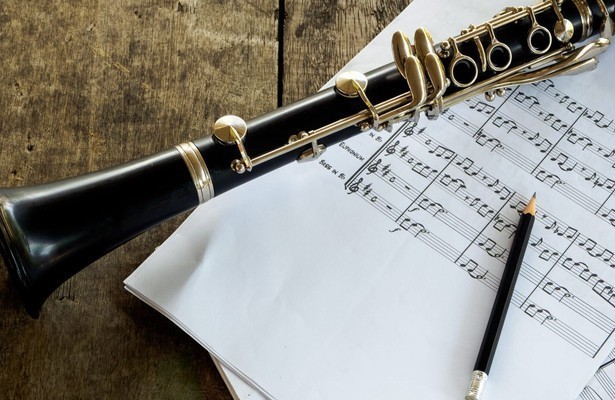 IN B♭
EUPHONIUM
BASS IN B♭